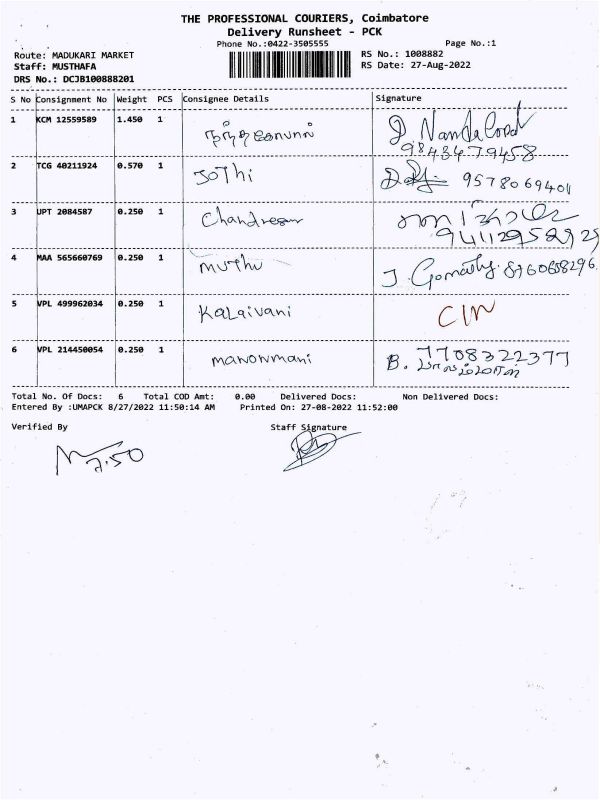 THE PROFESSIONAL COURIERS, Coimbatore
Delivery Runsheet - PCK
Phone No.:0422-3505555
Page No.:1
Route: MADUKARI MARKET
RS No.: 1008882
Staff: MUSTHAFA
RS Date: 27-Aug-2022
DRS No.: DCJB100888201
S No Consignment No Weight PCS Consignee Details Signature
1 KCM 12559589 1.450 1 நந்தகோபால்
9843479458
2 TCG 40211924 0.570 1 Jothi 9578069401
3 UPT 2084587 0.250 1
4 MAA 565660769 0.250 1 Muthu J. Gomathy 8760658296
5 VPL 499962034 0.250 1 Kalaivani
6 VPL 214450054 0.250 1 manonmani B. 7708322377
Total No. Of Docs: 6 Total COD Amt: 0.00 Delivered Docs: Non Delivered Docs:
Entered By :UMAPCK 8/27/2022 11:50:14 AM Printed On: 27-08-2022 11:52:00
Verified By Staff Signature
7.50